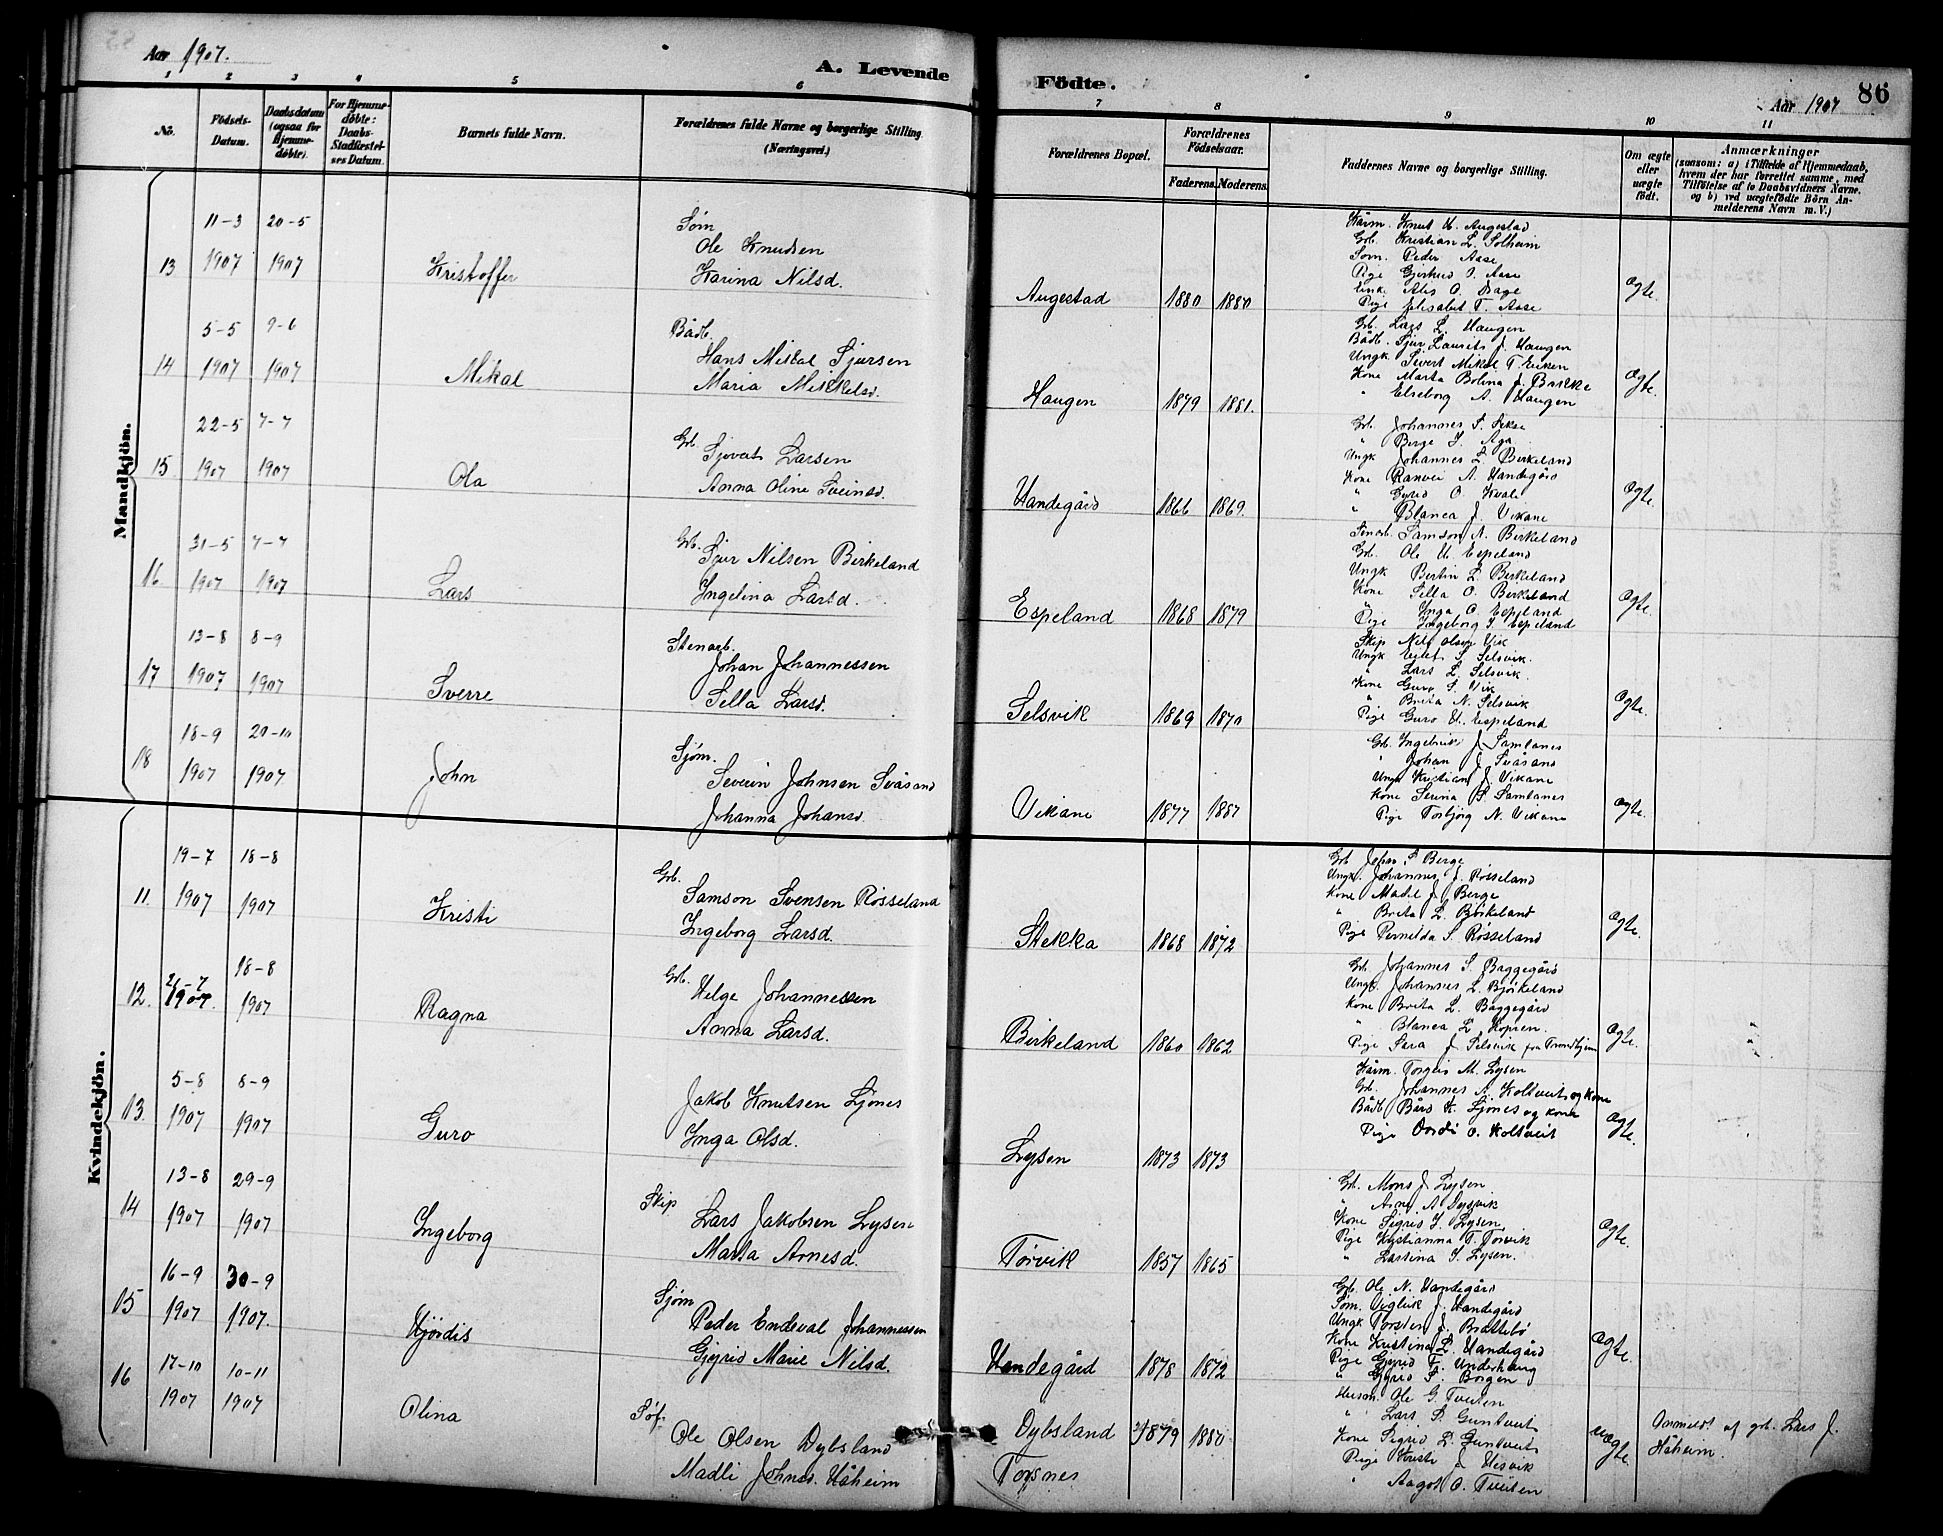 Aar 1907.
A. Levende
Födte.
Aar 1907
86
1 2 3 4 5 6 7 8 9 10 11
No.
Födsels-Datum.
Daabsdatum (ogsaa for Hjemme-döbte).
For Hjemme-döbte: Daabs-Stadfæstel-ses Datum.
Barnets fulde Navn.
Forældrenes fulde Navne og borgerlige Stilling. (Næringsvei.)
Forældrenes Bopæl.
Forældrenes Födselsaar.
Faderens. Moderens.
Faddernes Navne og borgerlige Stilling.
Om ægte eller uægte födt.
Anmærkninger
(saasom: a) i Tilfælde af Hjemmedaab,
hvem der har forrettet samme, med
Tilföielse af to Daabsvidners Navne.
og b) ved uægtefödte Börn An-
melderens Navn m. V.)
Mandkjön.
13 11-3 1907 20-5 1907 Kristoffer
Søm
Ole Knudsen
Karina Nilsd.
Augestad 1880 1880
Kårm. Knut H. Augestad
Grb. Kristian L. Solheim
Søm. Peder Aase
Pige Gjertrud I. Aase
Enk. Alis O. Drage
Pige Elisabet T. Aase
Ægte.
14 5-5 1907 9-6 1907 Mikal
Bådb.
Hans Mikal Sjursen
Maria Mikkelsd.
Haugen 1879 1881.
Grb. Lars L. Haugen
Bådb. Sjur Laurits J. Haugen
Ungk Sivert Mikal T. Eriksen
Kone Marta Bolina J. Bakke
" Elseborg A. Haugen
Ægte.
15 22-5 1907 7-7 1907 Ola
Grb.
Sjovat Larsen
Anna Oline Sveinsd.
Handegård 1866 1869.
Grb. Johannes S. Sekse
" Berge I. Aga
Ungk Johannes L. Birkeland
Kone Ranvei A. Handegård
" Gyrid O. Kvale
" Blanca J. Vikane
Ægte.
16 31-5 1907 7-7 1907 Lars
Grb.
Sjur Nilsen Birkeland
Ingelina Larsd.
Espeland 1868 1879
Stenarb. Samson A. Birkeland
Grb. Ole H. Espeland
Ungk Bertin L. Birkeland
Kone Sella O. Birkeland
" Inga O. Espeland
Pige Ingeborg I. Espeland
Ægte.
17 13-8 1907 8-9 1907 Sverre
Stenarb.
Johan Johannessen
Sella Larsd.
Selsvik 1869 1870
Skip Nils Olsen Vik
Ungk Eilef S. Selsvik.
" Lars L. Selsvik.
Kone Guro S. Vik
" Brita N. Selsvik
Pige Guro H. Espeland
Ægte.
18 18-9 1907 20-10 1907 John
Sjøm.
Severin Johnsen Svåsand
Johanna Johansd.
Vikane 1877 1887
Grb. Ingebrikt J. Samlanes
" Johan J. Svåsand
Ungk Kristian J. Vikane
Kone Serina S. Samlanes
Pige Torbjørg N. Vikane
Ægte.
Kvindekjön.
11. 19-7 1907 18-8 1907 Kristi
Grb.
Samson Svensen Rosseland
Ingeborg Larsd.
Stekka 1868 1872
Grb Johan S Berge
Ungk. Johannes J. Rosseland
Kone Madel J. Berge
" Brita L. Bjørkeland
Pige Pernilda S. Røsseland
Ægte.
12. 2/5-7 1907. 18-8 1907 Ragna
Grb.
Helge Johannessen
Anna Larsd.
Birkeland 1860 1862
Grb. Johannes S. Baggegård
Ungk. Johannes L. Bjørkeland
Kone Brita L. Baggegård
" Blanca L. Kopren.
Pige Sara J. Selsvik fra Trondhjem
Ægte.
13. 5-8 1907 8-9 1907 Guro
Jakob Knutsen Ljones
Inga Olsd.
Lysen 1873 1873
Kårm. Torgeis M. Lysen
Grb. Johannes A. Koltveit og kone
Bådb Bård K. Ljones og kone
Pige Ovedi O. Koltveit
Ægte.
14 13-8 1907 29-9 1907 Ingeborg
Skip
Lars Jakobsen Lysen
Marta Arnesd.
Tørvik 1857 1865
Grb. Mons J. Lysen
" Arne A. Dysvik
Kone Sigrid I. Lysen
Pige Kristianna T. Torvik
" Larsina I. Lysen.
Ægte.
15 16-9 1907 30-9 1907. Hjørdis
Sjøm
Peder Endeval Johannessen
Gjyrid Marie Nilsd.
Handegård 1878 1872
Grb. Ole N. Handegård
Søm. Viglik J. Handegård
Ungk Torsten J. Brattebø
Kone Kristina L. Handegård
Pige Gjyrid T. Underhaug
" Gjyrid S. Borgen
Ægte.
16 17-10 1907 10-11 1907 Olina
Søf.
Ole Olsen Dybsland
Madli Johnsd. Håheim
Dybsland 1879 1880
Torsnes
Husm. Ole G. Tveiten
" Lars S. Guntveit
Kone Sigrid L. Guntveit
Pige Kristi J. Hisvik
" Aagot O. Tveiten
Uægte
Anmeldt af grb. Lars J. Håheim.